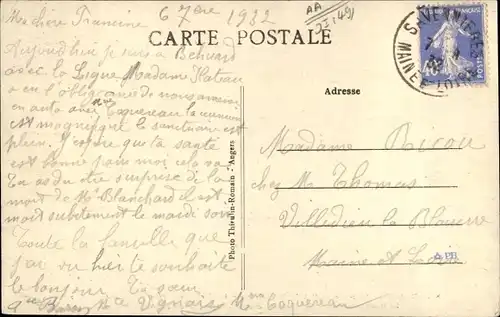 6 7bre 1932
Ma chère Francine
AA
CARTE POSTALE
Aujourd'hui je suis a Behuard
avec la Ligue Madame Plateau
a eu l'obligeance de nous amener
en auto avec Mme Coquereau la
est magnifique le sanctuaire est
plein. J'espère que ta santé
est bonne pour moi cela va
Tu as du etre surprise de la
mort de Mr Blanchard il est
mort subitement le mardi soir
Toute la famille que
j'ai vu hier te souhaite
le bonjour Ta sœur
Vignais Mme Coquereau
Photo Thieulin-Romain - Angers
MAINE ET LOIRE
POSTES
Adresse
Madame Ricou
chez Mr Thomas
Villedieu la Blouere
Maine et Loire